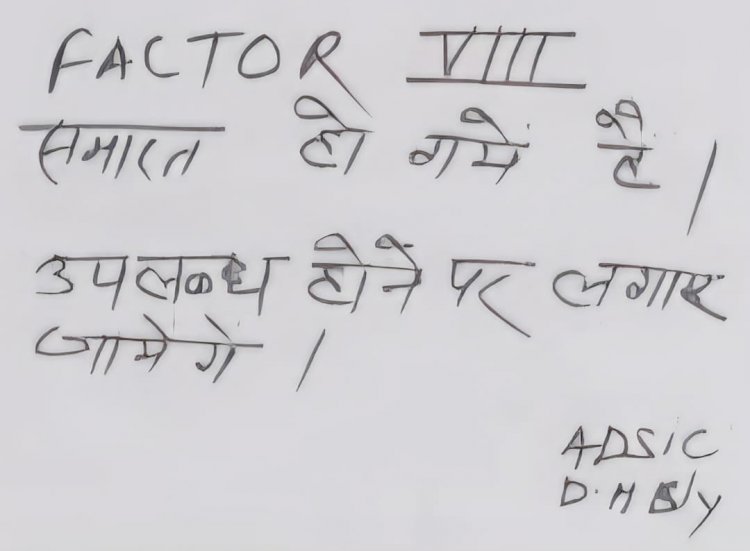 FACTOR VIII
समाप्त हो गये है।
उपलब्ध होने पर लगाए
जायेगे।
ADSIC
D.H Bly